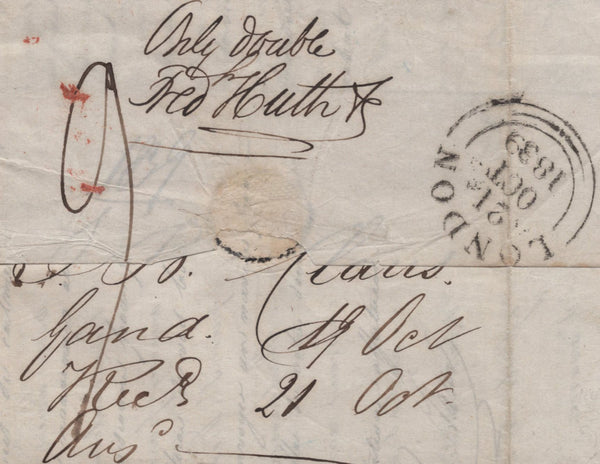 Only double
Fredk Huth &
LONDON
21
OCT
1839
Gand. 19 Oct
Recd 21 Oct.
Ansd